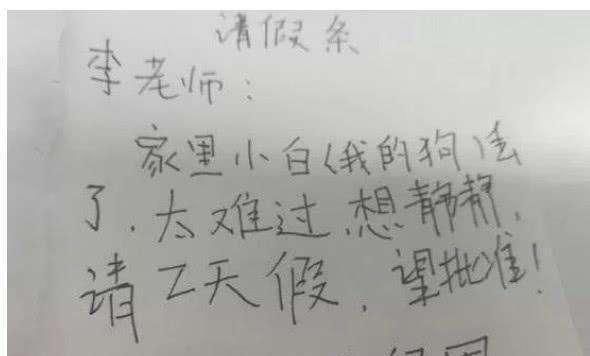 请假条
李老师：
家里小白(我的狗)丢
了．太难过．想静静．
请2天假．望批准！